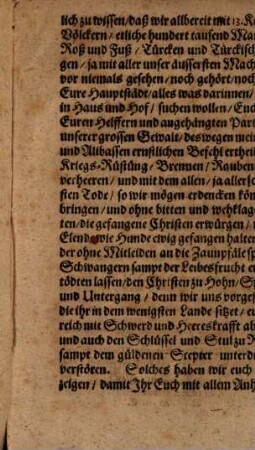 lich zu wissen/ daß wir allbereit mit 13. K
Völckern/ etliche hundert tausend Ma
Roß und Fuß/ Türcken und Türckisch
gen/ ja mit aller unser äussersten Mach
vor niemals gesehen/ noch gehört/ noch
Eure Hauptstädt/ alles was darinnen/
in Hauß und Hof/ suchen wollen/ Euch
Euren Helffern und angehängten Part
unserer grossen Gewalt/ deswegen mein
und Alibassen ernstlichen Befehl ertheil
Kriegs-Rüstung/ Brennen/ Rauben
verheeren/ und mit dem allen/ ja allersch
sten Tode/ so wir mögen erdencken kön
bringen/ und ohne bitten und wehklage
ten/ die gefangene Christen erwürgen/ u
Elend/ wie Hunde ewig gefangen halten
der ohne Mitleiden an die Zaunpfäle sp
Schwangern sampt der Leibesfrucht er
tödten lassen/ den Christen zu Hohn/ Sp
und Untergang/ denn wir uns vorges
die ihr in dem wenigsten Lande sitzet/ eu
reich mit Schwerd und Heereskrafft ab
und auch den Schlüssel und Stul zu R
sampt dem güldenen Scepter unterdr
verstören. Solches haben wir euch
zeigen/ damit Ihr Euch mit allem Anh